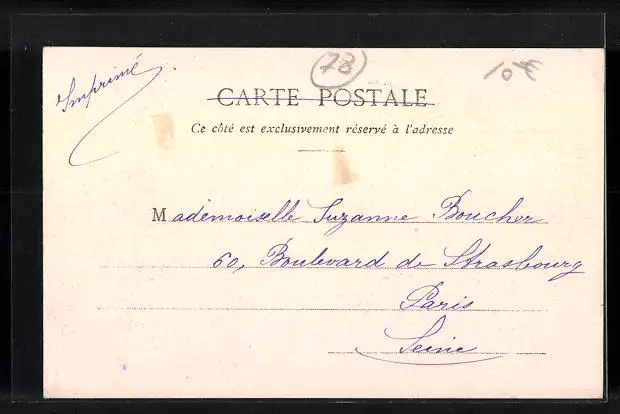 Imprimé
78
10€
CARTE POSTALE
Ce côté est exclusivement réservé à l'adresse
Mademoiselle Suzanne Boucher
60, Boulevard de Strasbourg
Paris
Seine